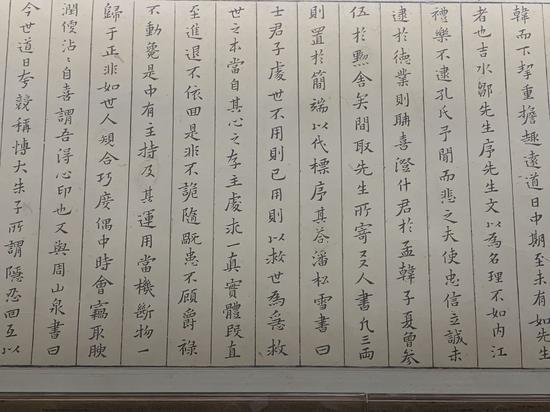 韓而下挈重擔趣遠道日中期至未有如先生
者也吉水鄒先生序先生文以為名理不如內江
禮樂不逮孔氏予聞而悲之夫使忠信立誠未
逮於德業則疇喜澄什君於孟韓子夏曾參
伍於勲舍矣間取先生所寄友人書凡三兩
則置於簡端以代標序其荅潘松雪書曰
士君子處世不用則已用則以救世為急救
世之本當自其心之存主處求一真實體段直
至進退不依回是非不詭隨患不顧爵祿
不動是中有主持及其運用當機斷物一
歸于正非如世人規合巧度偶中時會竊取腴
潤沾沾自喜謂吾得心印也又與周山泉書曰
今世道日夸競稱博大朱子所謂隱忍回互以